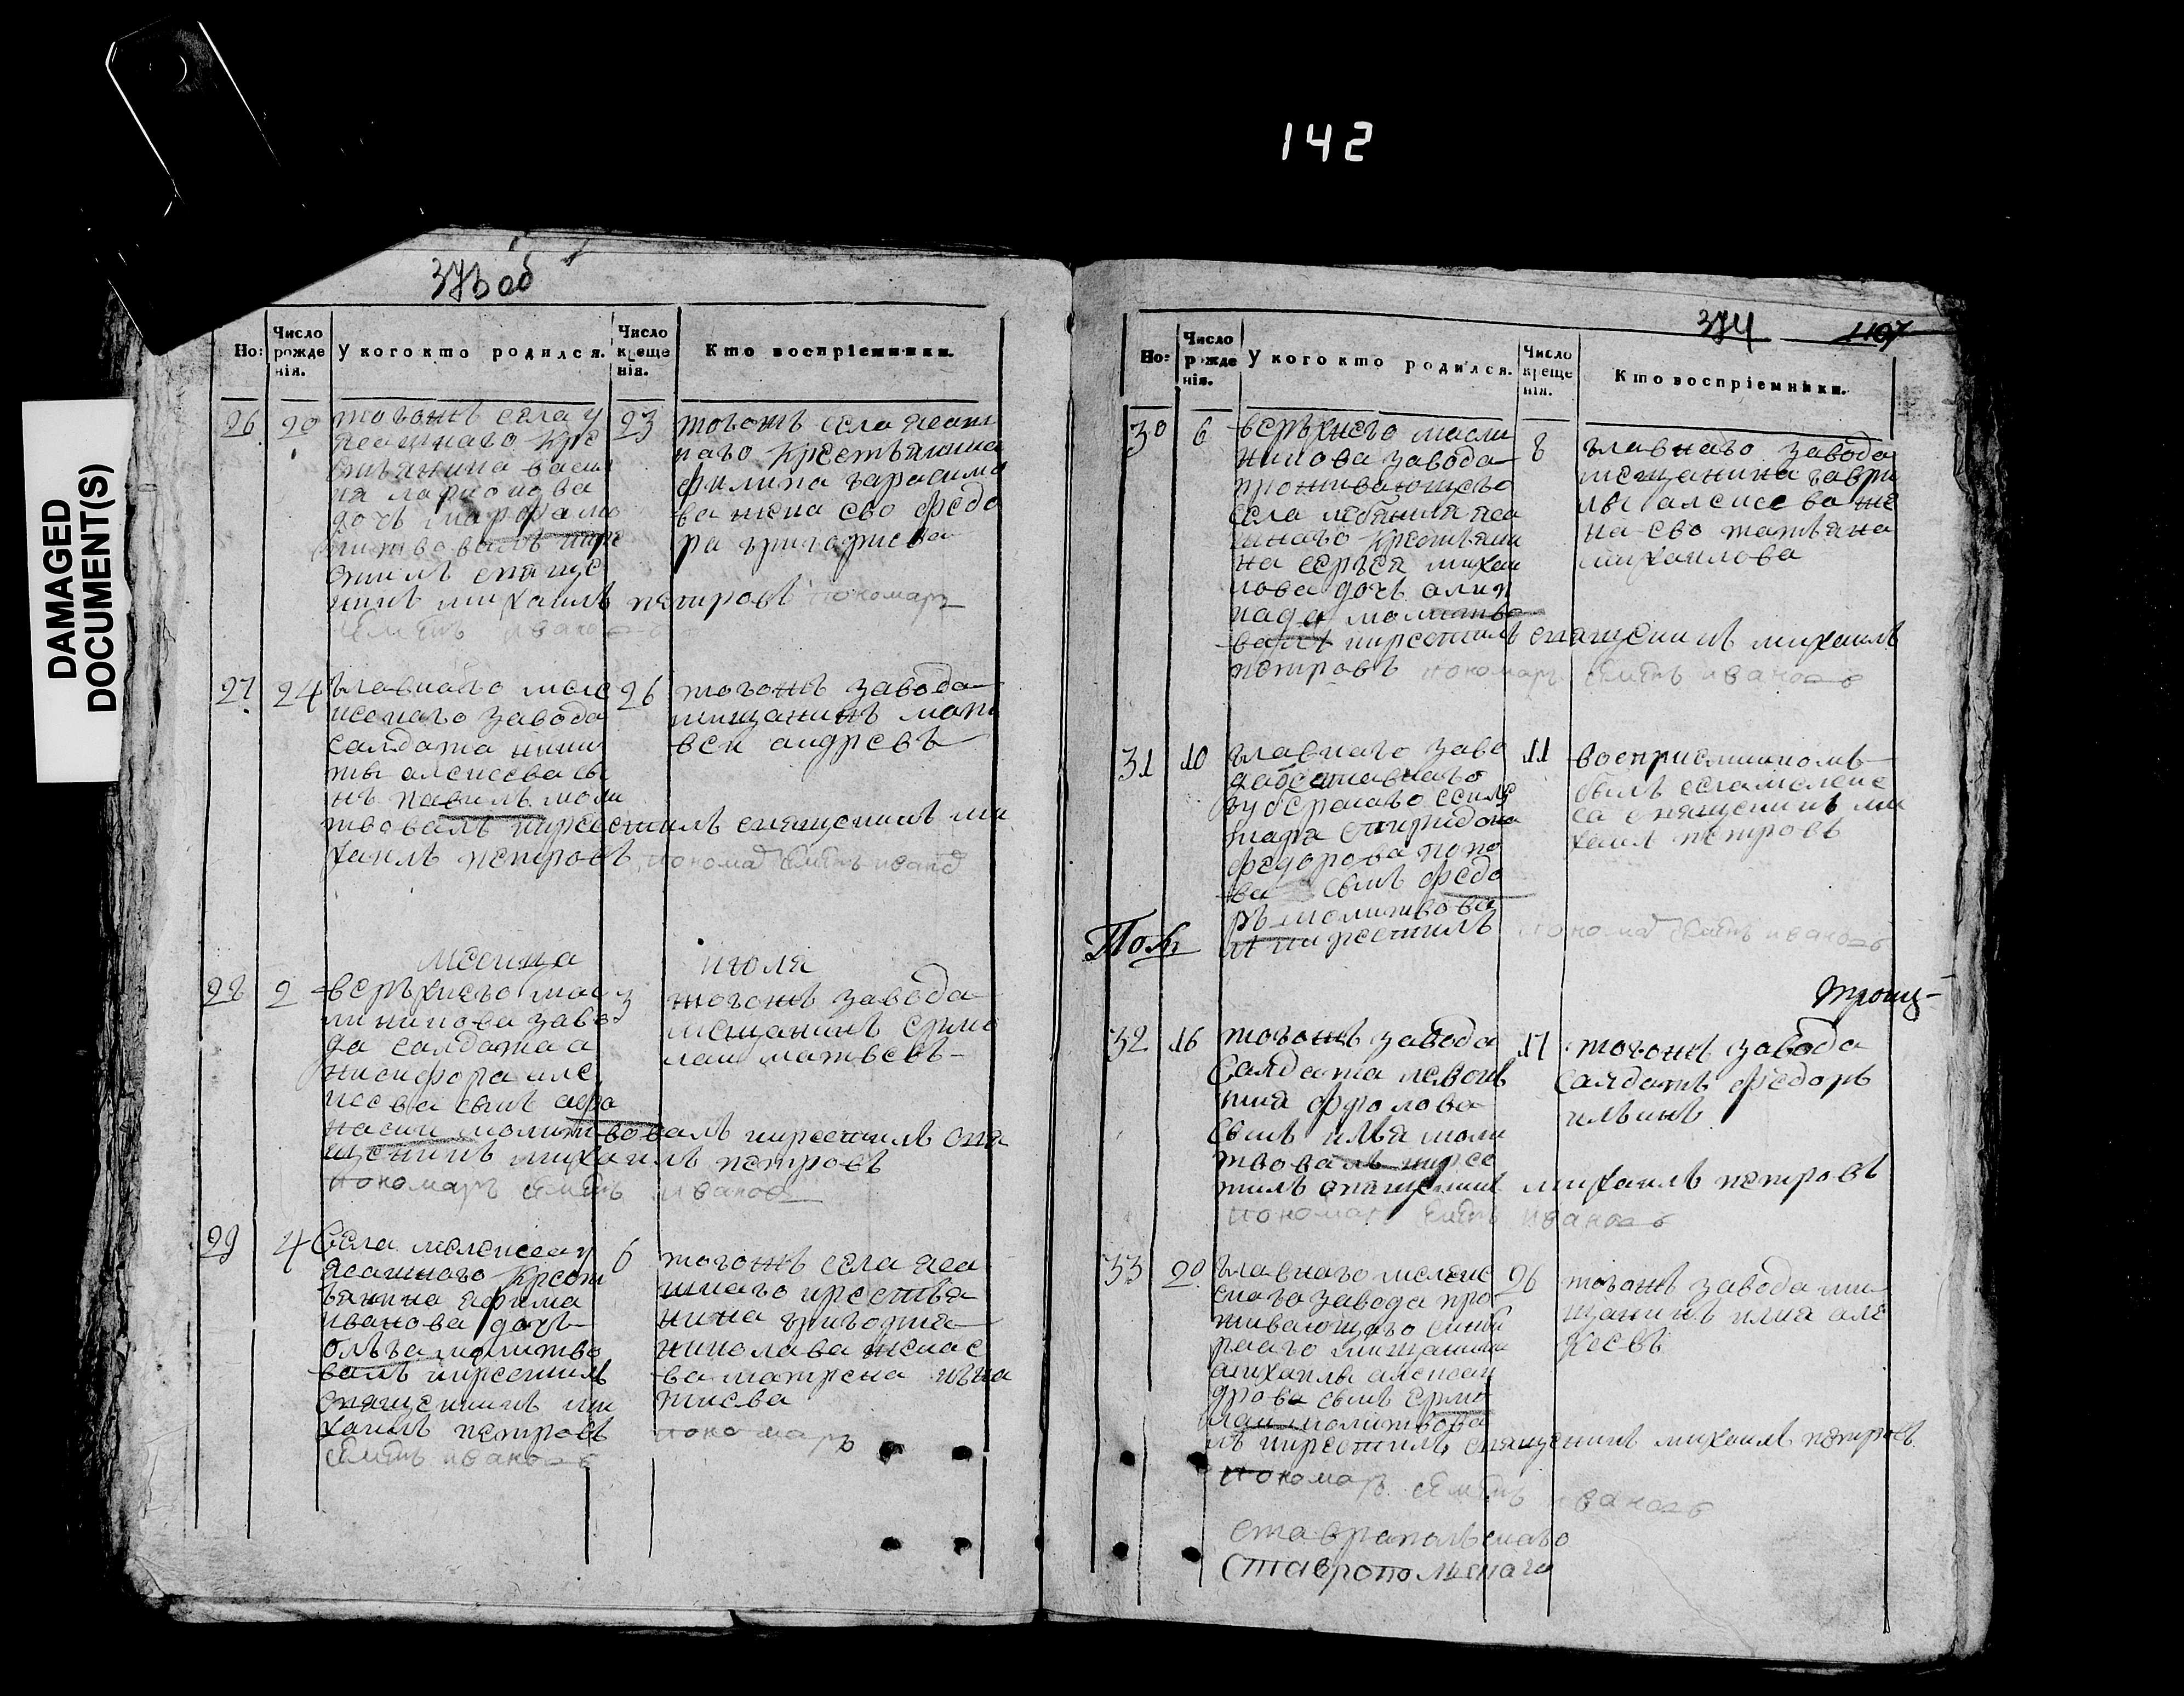 142
DAMAGED
DOCUMENT(S)
373 об
Но:
Число рожденія.
У кого кто родился.
Число крещенія.
Кто воспріемники.
26
20
тогожъ села у
ясашнаго кре
стьянина васи
ля ларионова
дочь марфа мо
литвовалъ икре
стилъ спящее
никъ михаилъ петровъ пономарь
семенъ иванов
23
тогожъ села ясаш
наго крестьянина
филипа гарасимо
ва жена ево федо
ра григориева
27
24
главнаго меле
кескаго завода
салдата ники
ты алексеева сы
нъ павилъ моли
твовалъ икрестилъ спященикъ ми
хаилъ петровъ понома семенъ иванов
26
тогожъ завода
мищанинъ мат
веи андревъ
месица июля
28
2
верхнего мас
линикова заво
да салдата а
никифора але
ксева сынъ афа
насии молитвовалъ икрестилъ спя
щеникъ михаилъ петровъ
пономарь семенъ иванов
3
тогожъ завода
мещанинъ ермо
лаи матвевъ
29
4
Села мелекеса у
ясашнаго крест
ьянина яфима
иванова дочь
ольга молитво
валъ икрестилъ
спященикъ ми
хаилъ петровъ
семенъ ивановъ
6
тогожъ села яса
шнаго крестья
нина григория
николава жена е
ва матрена игна
тиева
пономарь
374
1107
Но:
Число рожденія.
У кого кто родился.
Число крещенія.
Кто воспріемники.
30
6
верхнего масли
никова завода
проживающего
села лебяжья яса
шнаго крестьяни
на сергея михаи
лова дочь алим
пада молитво
валъ икрестилъ спященикъ михаилъ
петровъ пономарь семенъ ивановъ
8
главнаго завода
мещанина гаври
лы алексеева же
на ево татьяна
михаилова
31
10
главнаго заво
да отставнаго
губернскаго секре
таря спиридона
федорова попо
ва сынъ федо
ръ молитвова
лъ икрестилъ пономарь семенъ ивановъ
11
восприемникомъ
былъ села мелеке
са спященикъ ми
хаилъ петровъ
По
троиц-
32
16
тогожъ завода
Салдата левонъ
тия фролова
сынъ илья моли
твовалъ икрес
тилъ спященикъ михаилъ петровъ
пономарь семенъ ивановъ
17
тогожъ завода
салдатъ федоръ
ильинъ
33
20
главнаго мелекес
скаго завода про
живающаго синби
рскаго мищанина
михаилы алексан
дрова сынъ ермо
лаи молитвова
лъ икрестилъ спященикъ михаилъ петровъ
пономарь семенъ ивановъ
26
тогожъ завода ми
щанинъ илия але
ксевъ
ставрапольскаго
Ставропольскаго